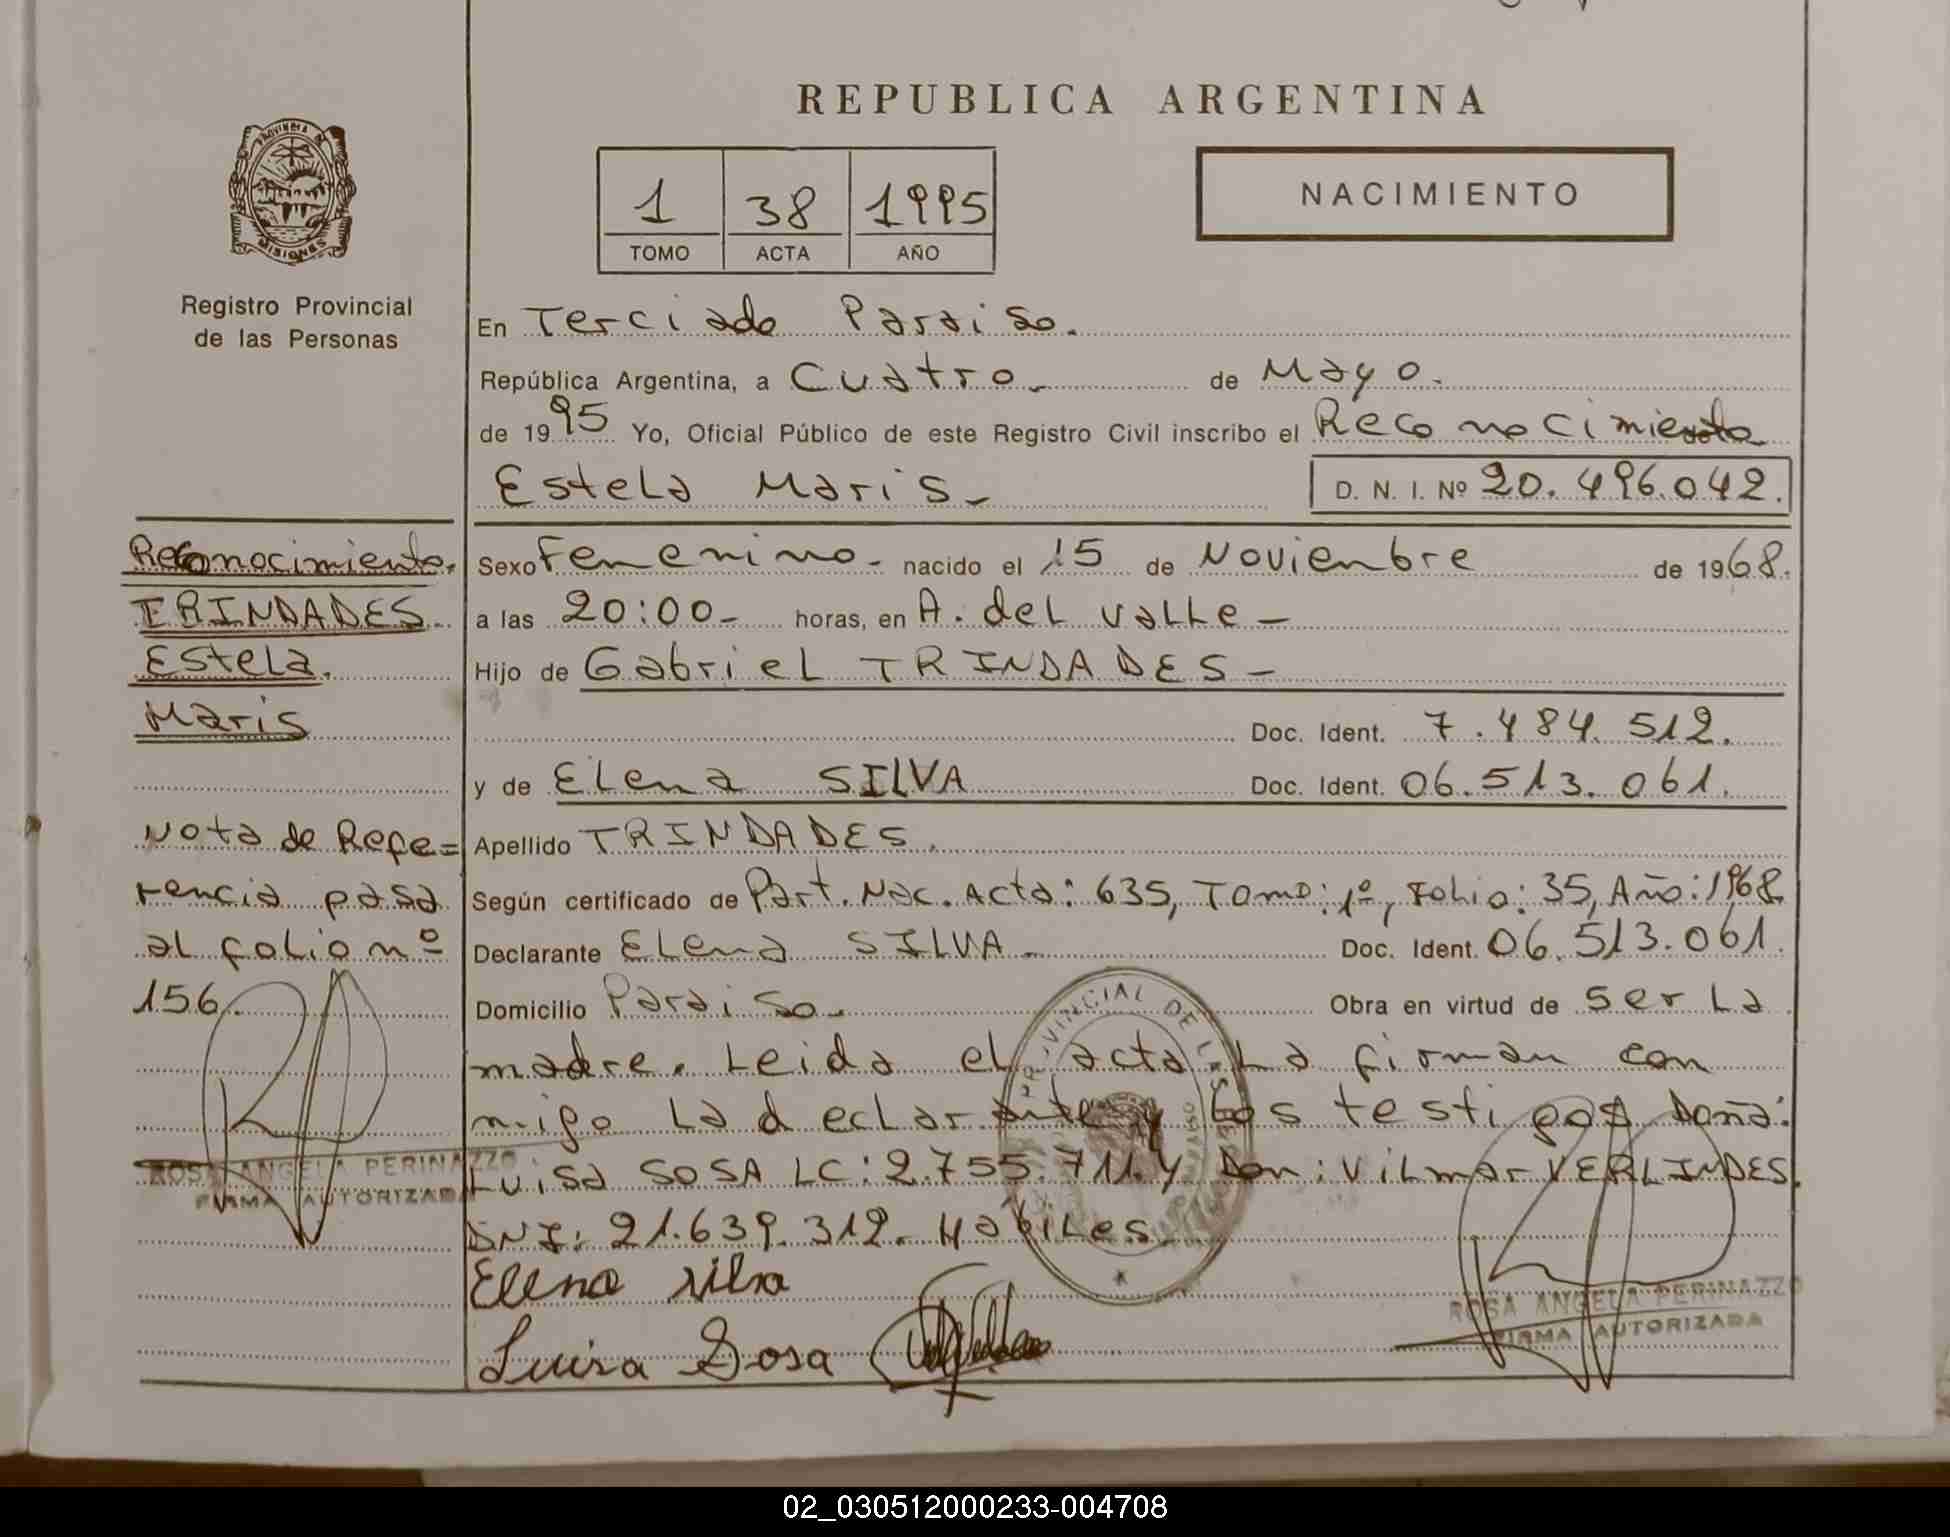 REPUBLICA ARGENTINA
PROVINCIA DE
MISIONES
Registro Provincial
de las Personas
1 38 1995
TOMO ACTA AÑO
NACIMIENTO
En Terciado Paraiso.
República Argentina, a Cuatro.- de Mayo.
de 19 95 Yo, Oficial Público de este Registro Civil inscribo el Reconocimiento
Estela Maris- D. N. I. Nº 20.496.042.
Sexo Femenino- nacido el 15 de Noviembre de 1968.
a las 20:00- horas, en A. del Valle-
Hijo de Gabriel TRINDADES-
Doc. Ident. 7.484.512.
y de Elena SILVA Doc. Ident. 06.513.061.
Apellido TRINDADES.
Según certificado de Part. Nac. Acta: 635, Tomo: 1º, Folio: 35, Año: 1968
Declarante Elena SILVA- Doc. Ident. 06.513.061.
Domicilio Paraiso- Obra en virtud de Ser La
madre. Leida el acta La firman con
migo La declarante y Los testigos Doña:
Luisa SOSA LC: 2.755.711. y Don: Vilmar VERLINDES.
DNI: 21.639.312. Habiles.
Elena Silva
Luisa Sosa
ROSA ANGELA PERINAZZO
FIRMA AUTORIZADA
Reconocimiento.
TRINDADES
Estela.
Maris
Nota de Refe=
rencia pasa
al folio nº
156.
ROSA ANGELA PERINAZZO
FIRMA AUTORIZADA
PROVINCIAL DE LAS
02_030512000233-004708